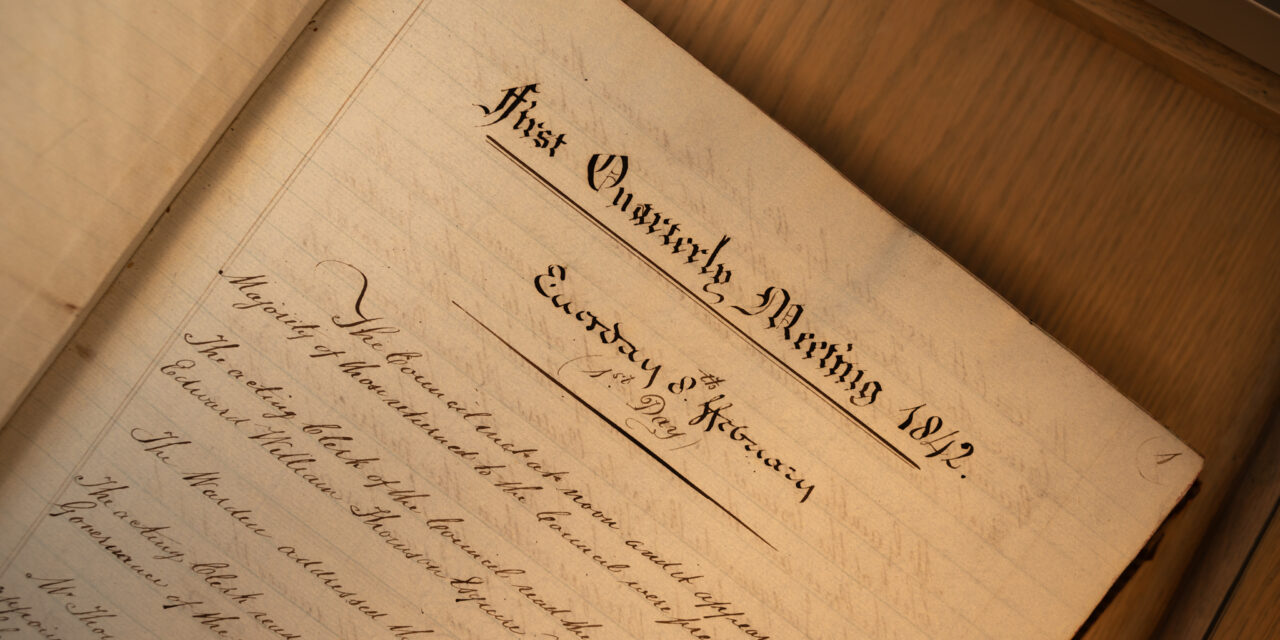 1
First Quarterly Meeting 1842.
Tuesday 8th February
(1st Day)
The Council met at noon and it appear
Majority of those returned to the Council were pre
The acting Clerk of the Council read the
Edward William Thomson Esquire
The Warden addressed th
The acting Clerk read
Governance of the
Mr. Tho